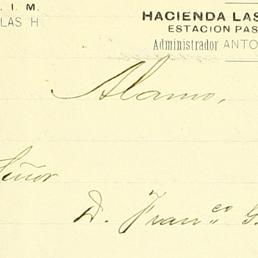 . I. M.
LAS H
HACIENDA LAS
ESTACION PAS
Administrador ANTO
Alamo,
eñor
D. Fran.co G.